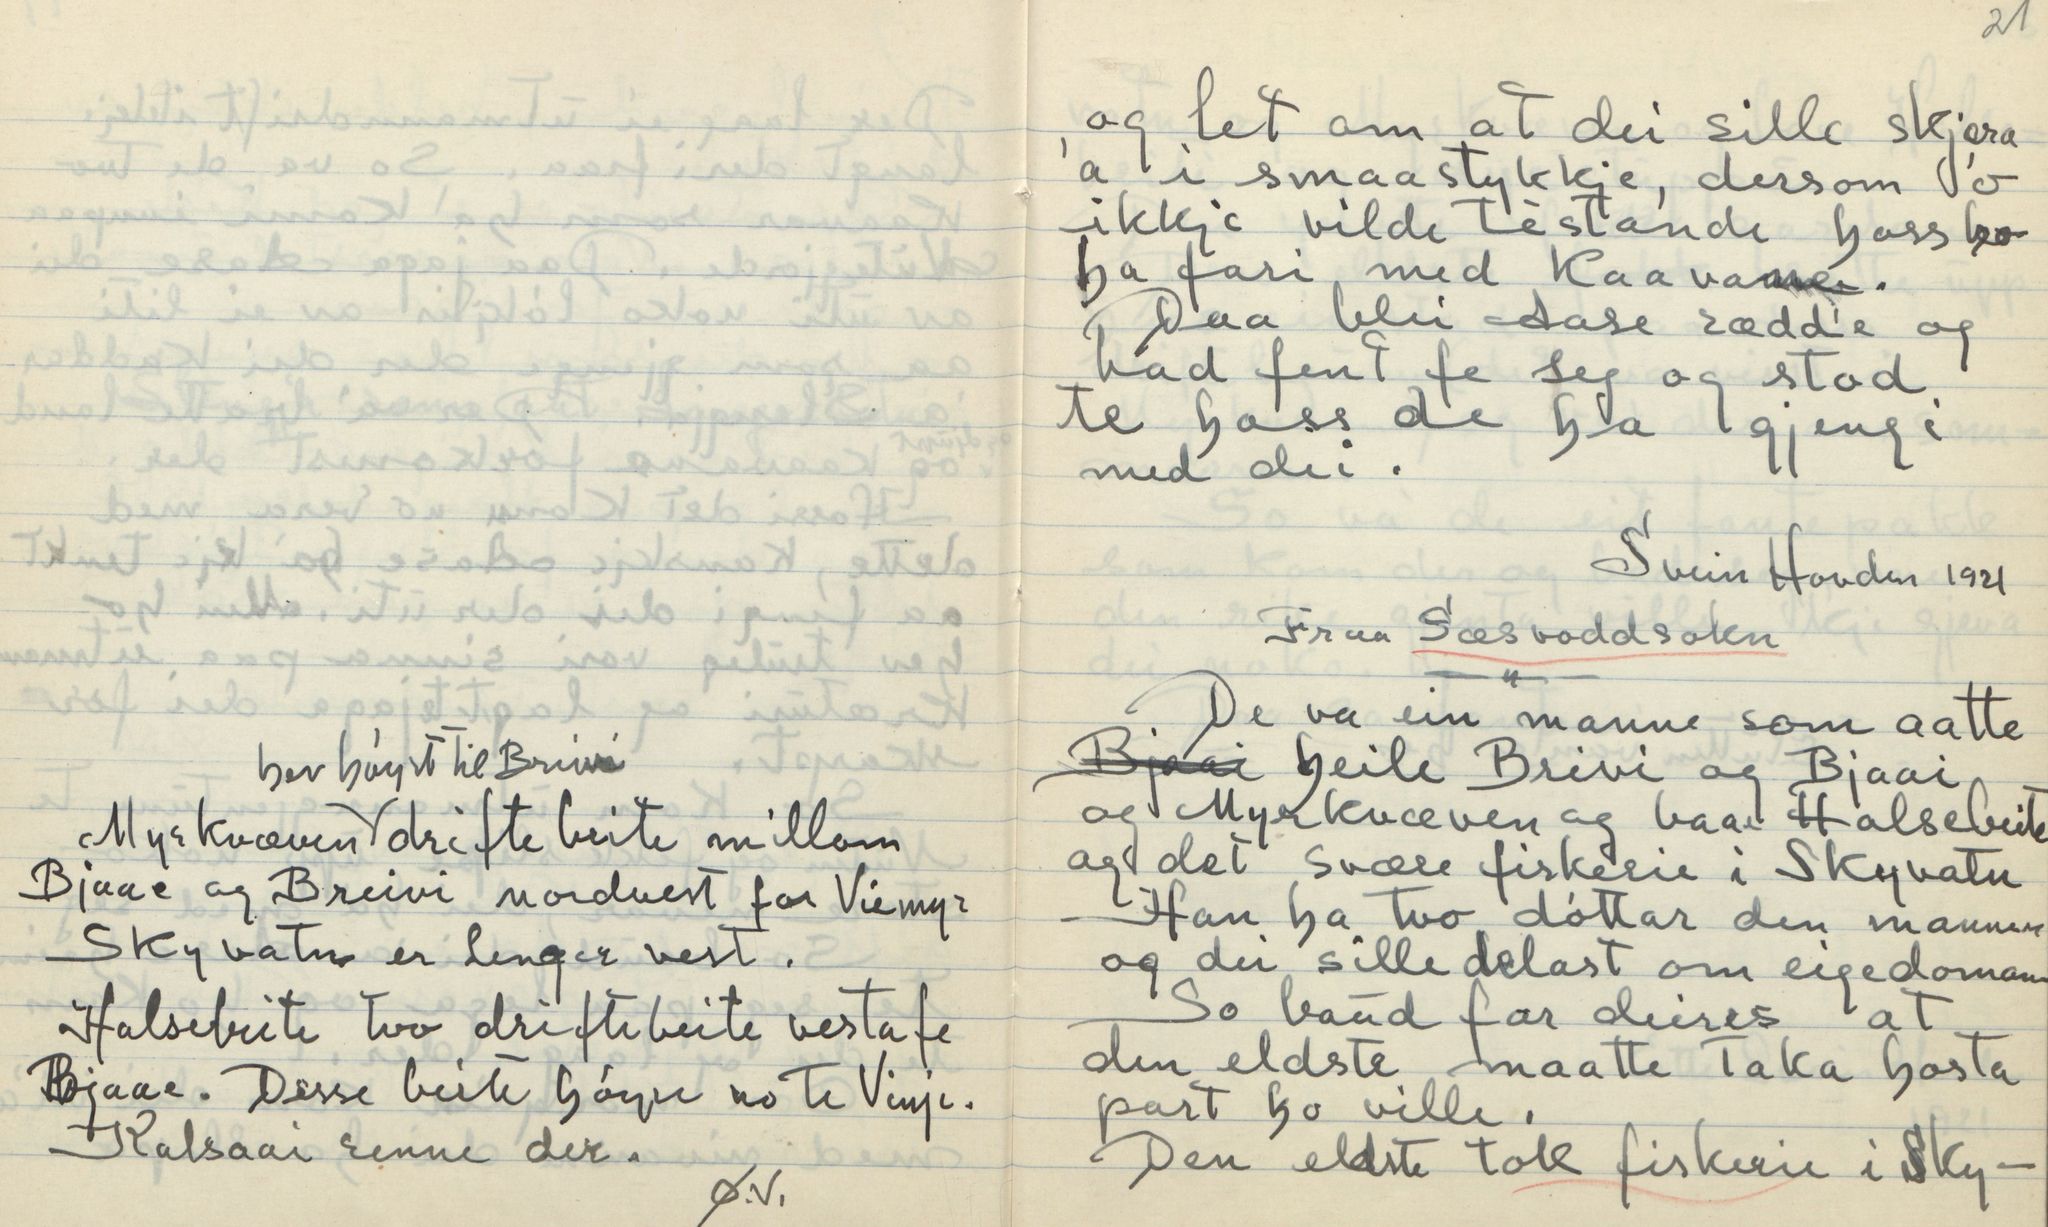 hev høyrt til Breivi
Myrkvæven driftebeite millom
Bjaae og Breivi nordvest for Viemyr
Skyvatn er lenger vest.
Halsebeite tvo driftebeite vestafe
Bjaae. Desse beite høyre no te Vinje.
Kalsaai renne der.
Ø.V.
21
og let om at dei sille skjera
'a i smaastykkje, dersom 'o
ikkje vilde testande hoss ho
ha fari med Kaavane.
Daa blei Aase rædd'e og
bad fent fe seg og stod
te hoss de ha gjengi
med dei.
Svein Hovden 1921
Fraa Sæsvoddsokn
De va ein manne som aatte
Bjaai heile Breivi og Bjaai
og Myrkvæven og baae Halsebeite
og det svære fiskerie i Skyvatn
Han ha tvo dóttar den mannen
og dei sille delast om eigedomann
So baud far deires at
den eldste maatte taka hosta
part ho ville.
Den eldste tok fiskerie i Sky-